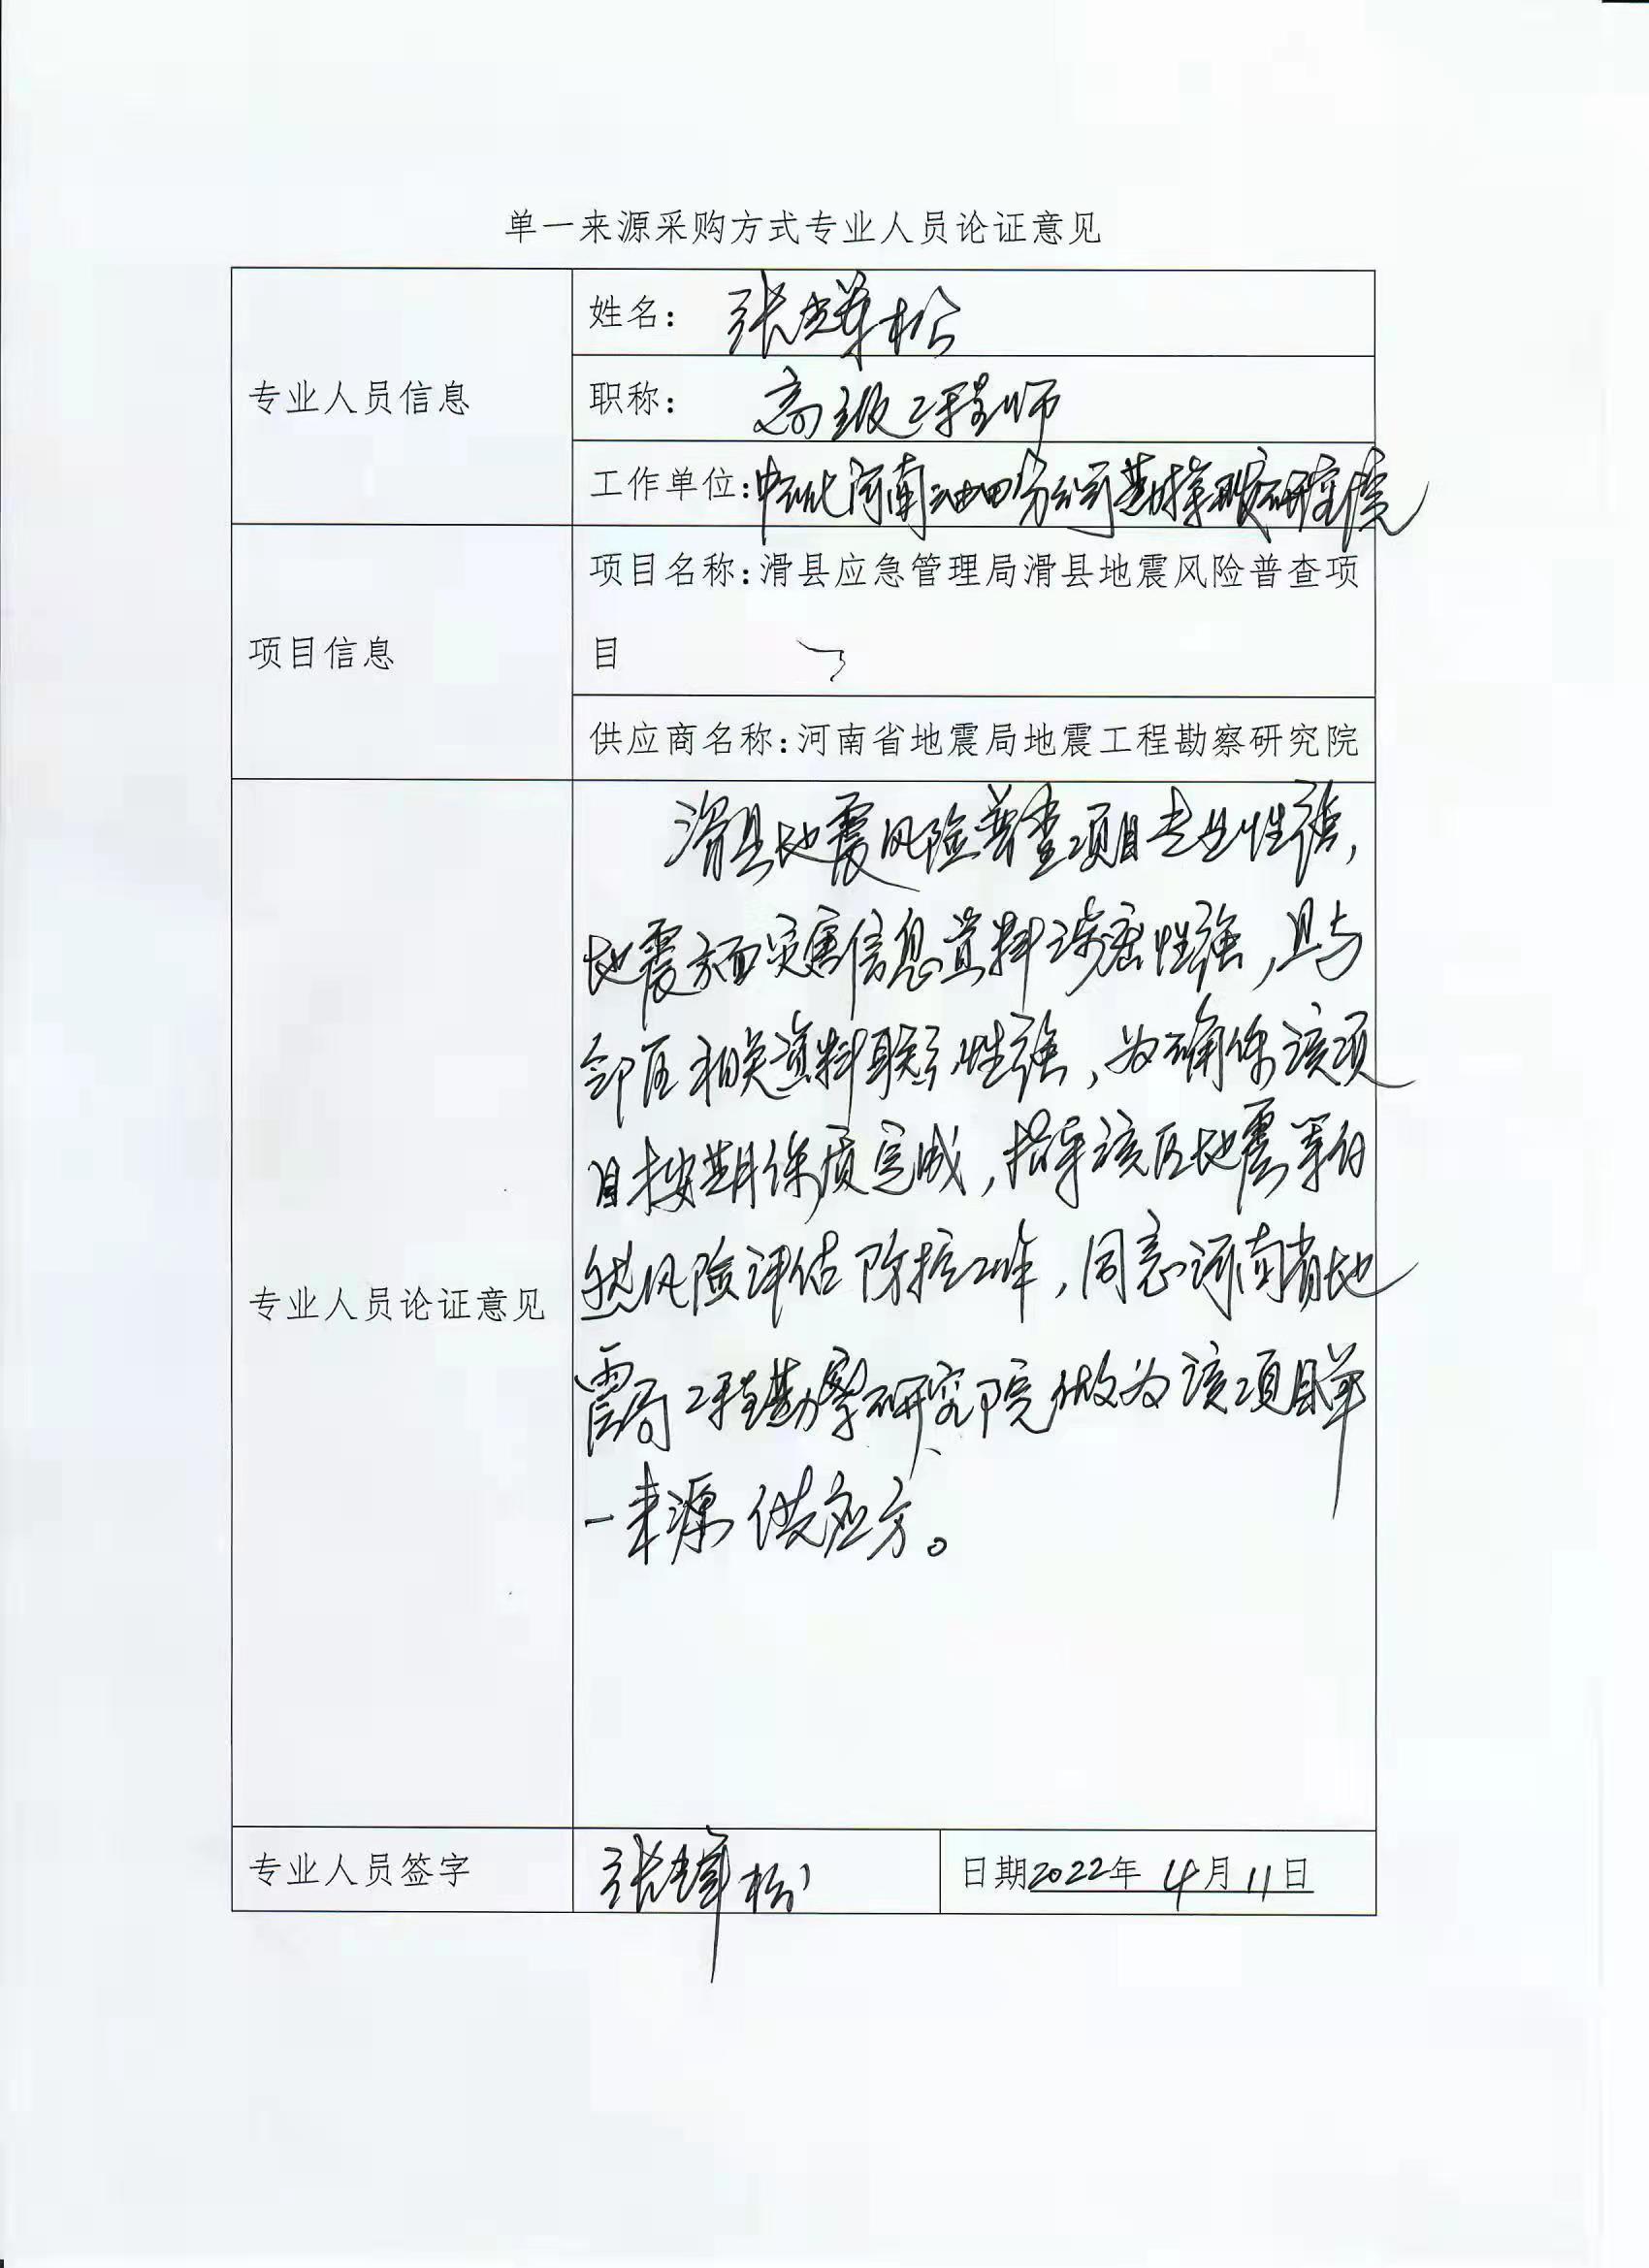 单一来源采购方式专业人员论证意见
专业人员信息
姓名: 张辉松
职称: 高级工程师
工作单位:中石化河南油田分公司勘探开发研究院
项目信息
项目名称:滑县应急管理局滑县地震风险普查项
目
供应商名称:河南省地震局地震工程勘察研究院
专业人员论证意见
滑县地震风险普查项目专业性强,
地震方面灾害信息资料涉密性强,且与
邻区相关资料联系性强,为确保该项
目按期保质完成,指导该区地震等自
然风险评估防控工作,同意河南省地
震局工程勘察研究院做为该项目单
一来源供应方。
专业人员签字
松
日期2022年 4月 11日